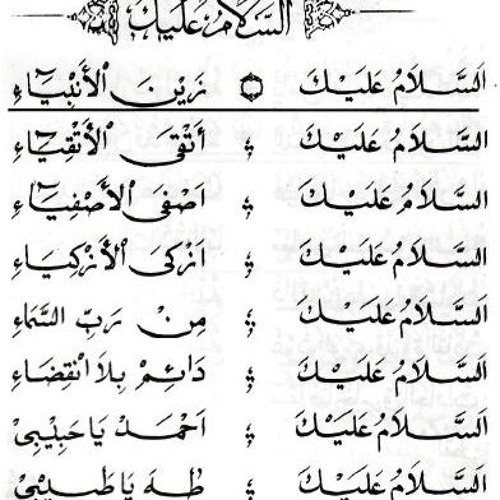 اَلسَّلَامُ عَلَيْكَ
اَلسَّلَامُ عَلَيْكَ ۞ زَيْنَ الْأَنْبِيَاءِ
اَلسَّلَامُ عَلَيْكَ ؛ أَتْقَى الْأَتْقِيَاءِ
اَلسَّلَامُ عَلَيْكَ ؛ اَصْفَى الْأَصْفِيَاءِ
اَلسَّلَامُ عَلَيْكَ ؛ اَزْكَى الْأَزْكِيَاءِ
اَلسَّلَامُ عَلَيْكَ ؛ مِنْ رَبِّ السَّمَاءِ
اَلسَّلَامُ عَلَيْكَ ؛ دَائِمْ بِلَا انْقِضَاءِ
اَلسَّلَامُ عَلَيْكَ ؛ اَحْمَدْ يَا حَبِيْبِيْ
اَلسَّلَامُ عَلَيْكَ ؛ طٰهٰ يَا طَبِيْبِيْ